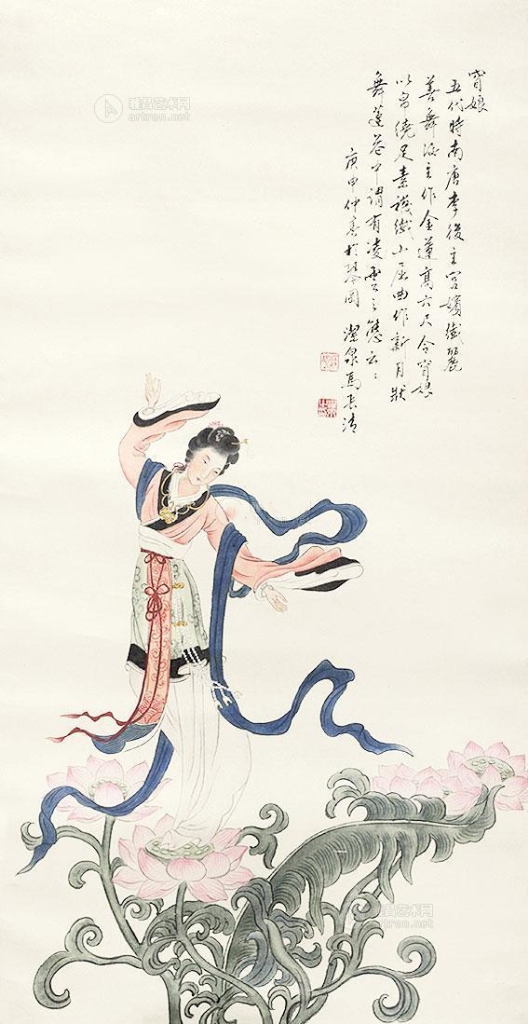 窅娘
五代時南唐李後主宮嬪纖麗
善舞後主作金蓮高六尺令窅娘
以帛繞足素襪纖小屈曲作新月狀
舞蓮花中謂有凌雲之態云云
庚申仲 於 園 潔泉馬長清
雅昌艺术网
artron.net
雅昌艺术网
artron.net